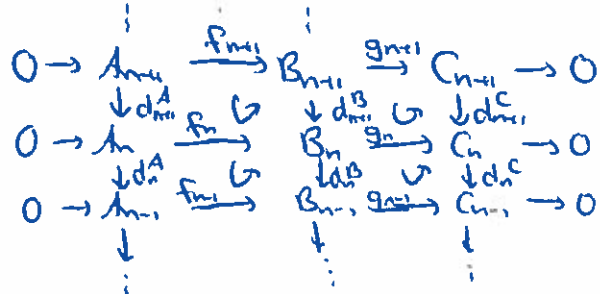 ⋮ ⋮
0 → Aₙ₊₁ —fₙ₊₁→ Bₙ₊₁ —gₙ₊₁→ Cₙ₊₁ → 0
↓ dₙ₊₁ᴬ ↺ ↓ dₙ₊₁ᴮ ↺ ↓ dₙ₊₁ᶜ
0 → Aₙ —fₙ→ Bₙ —gₙ→ Cₙ → 0
↓ dₙᴬ ↺ ↓ dₙᴮ ↺ ↓ dₙᶜ
0 → Aₙ₋₁ —fₙ₋₁→ Bₙ₋₁ —gₙ₋₁→ Cₙ₋₁ → 0
↓ ↓ ↓
⋮ ⋮ ⋮